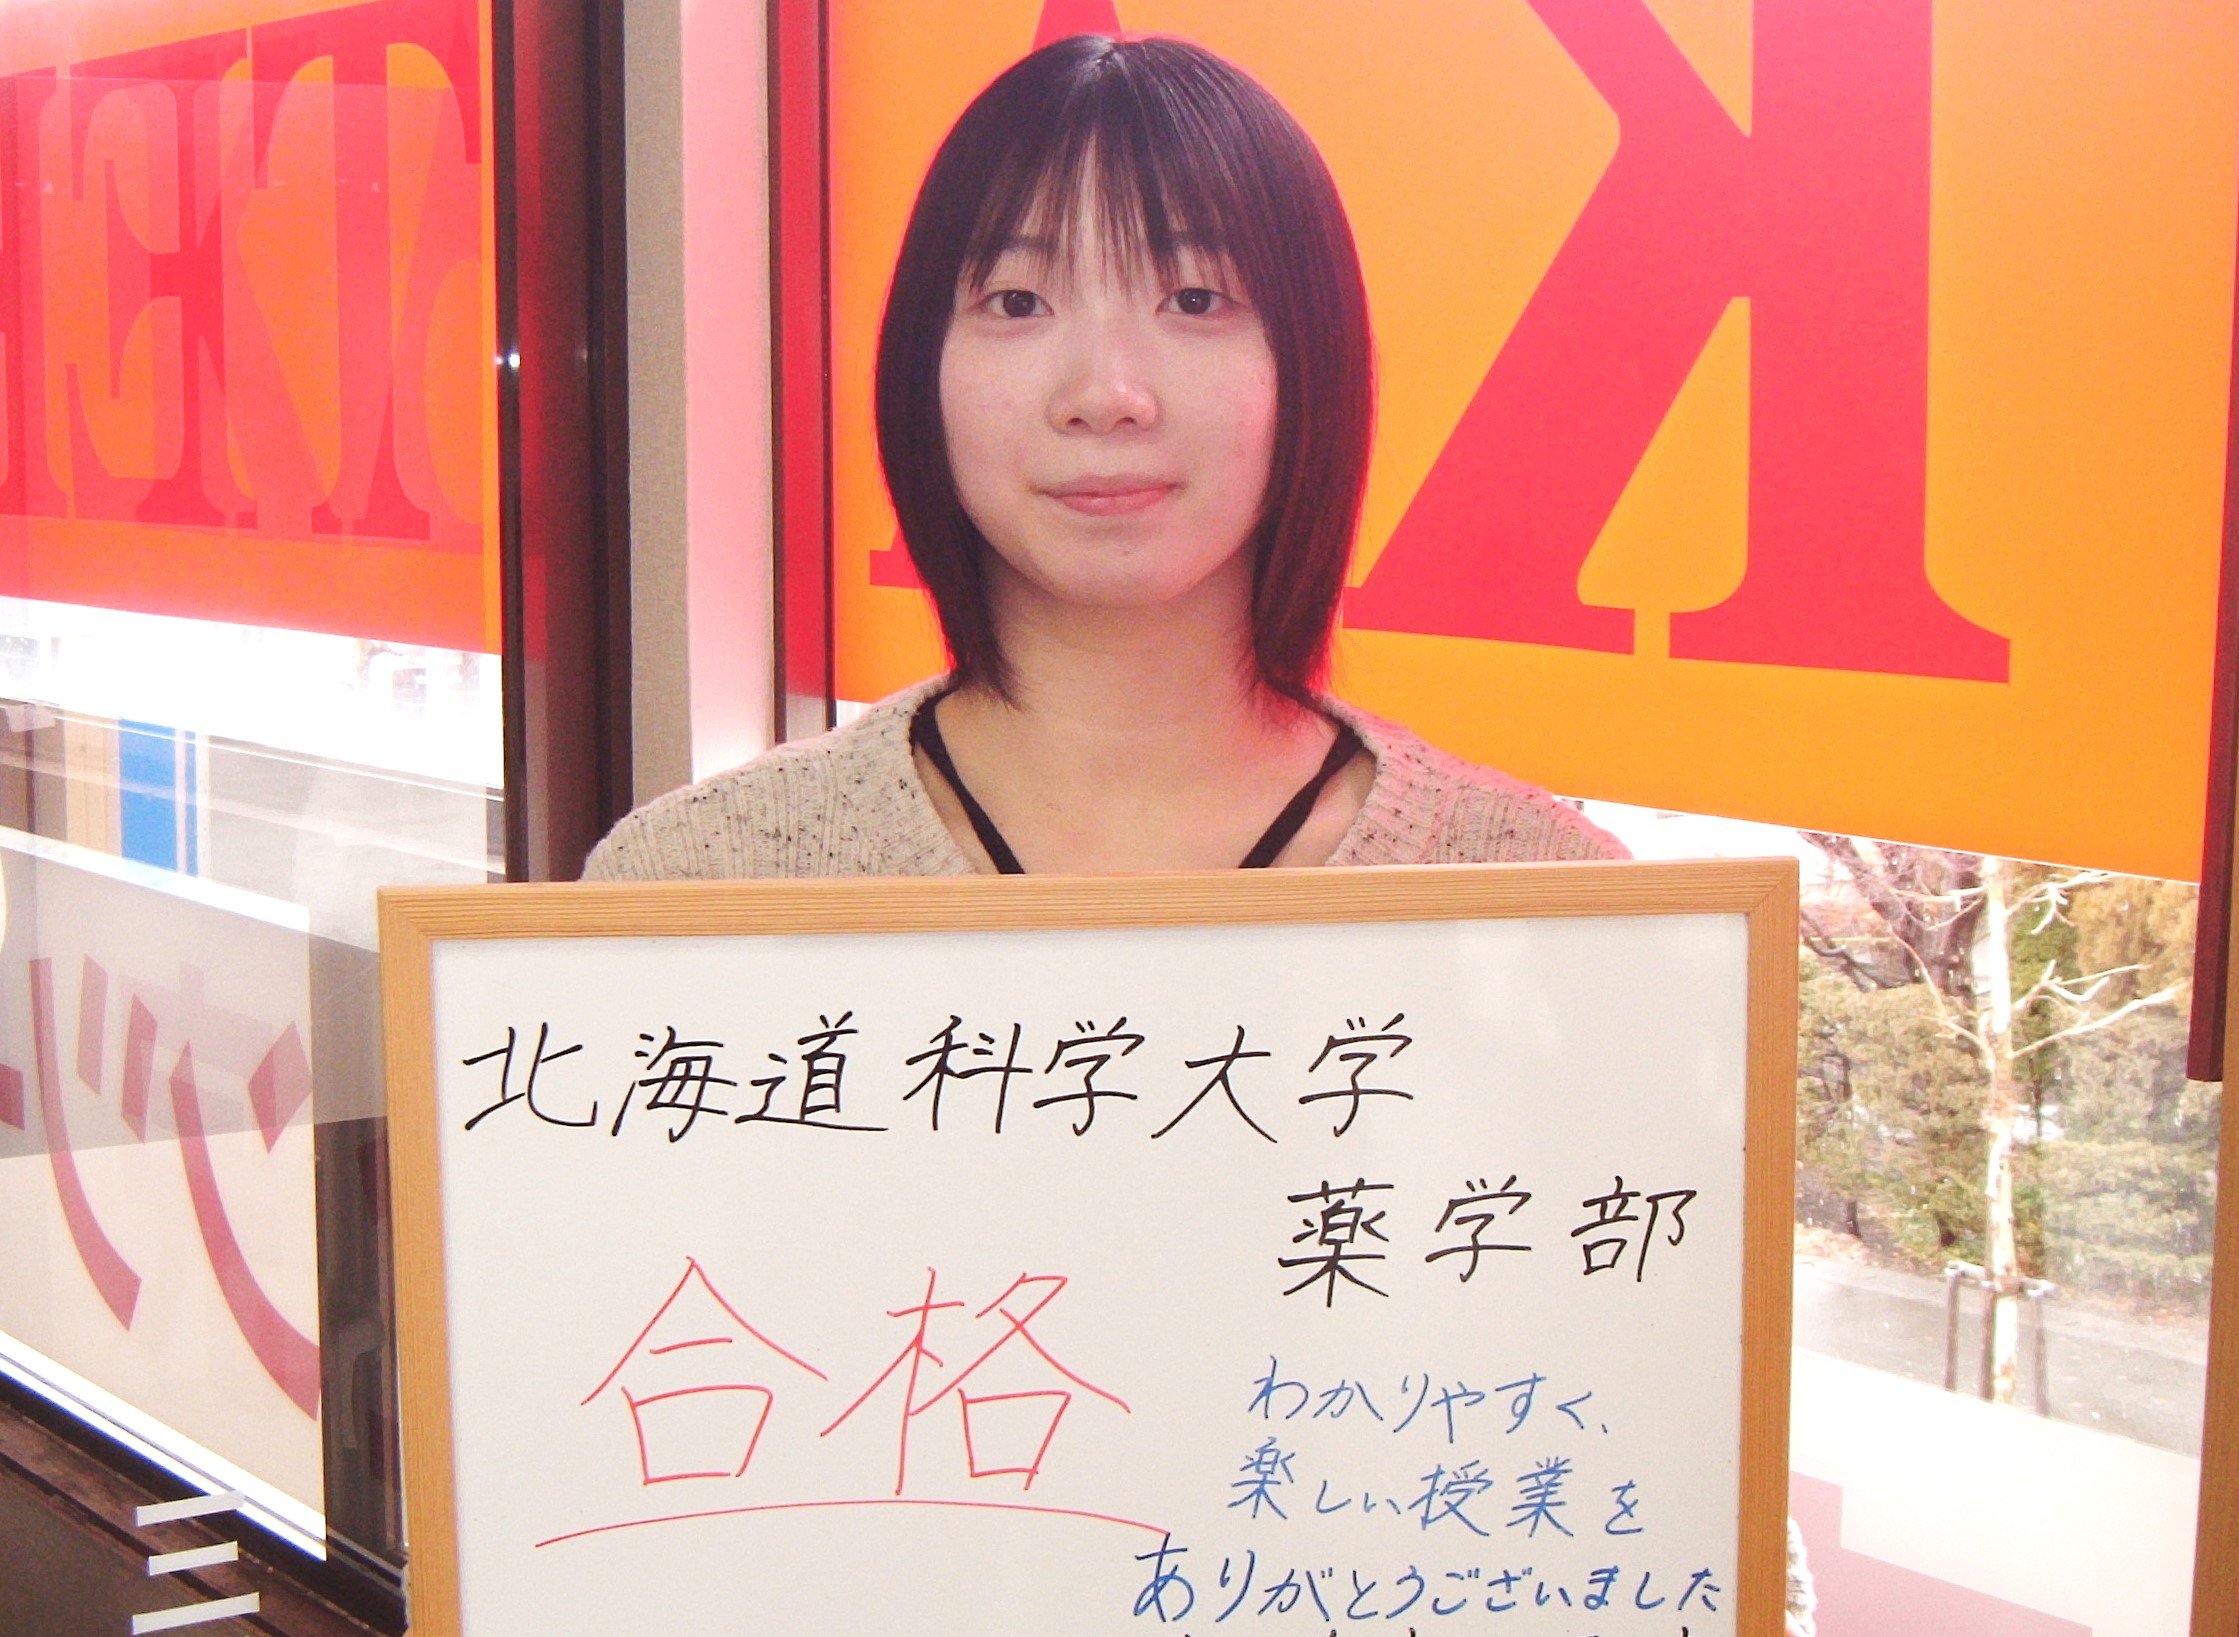 北海道科学大学
薬学部
合格
わかりやすく、
楽しい授業を
ありがとうございました